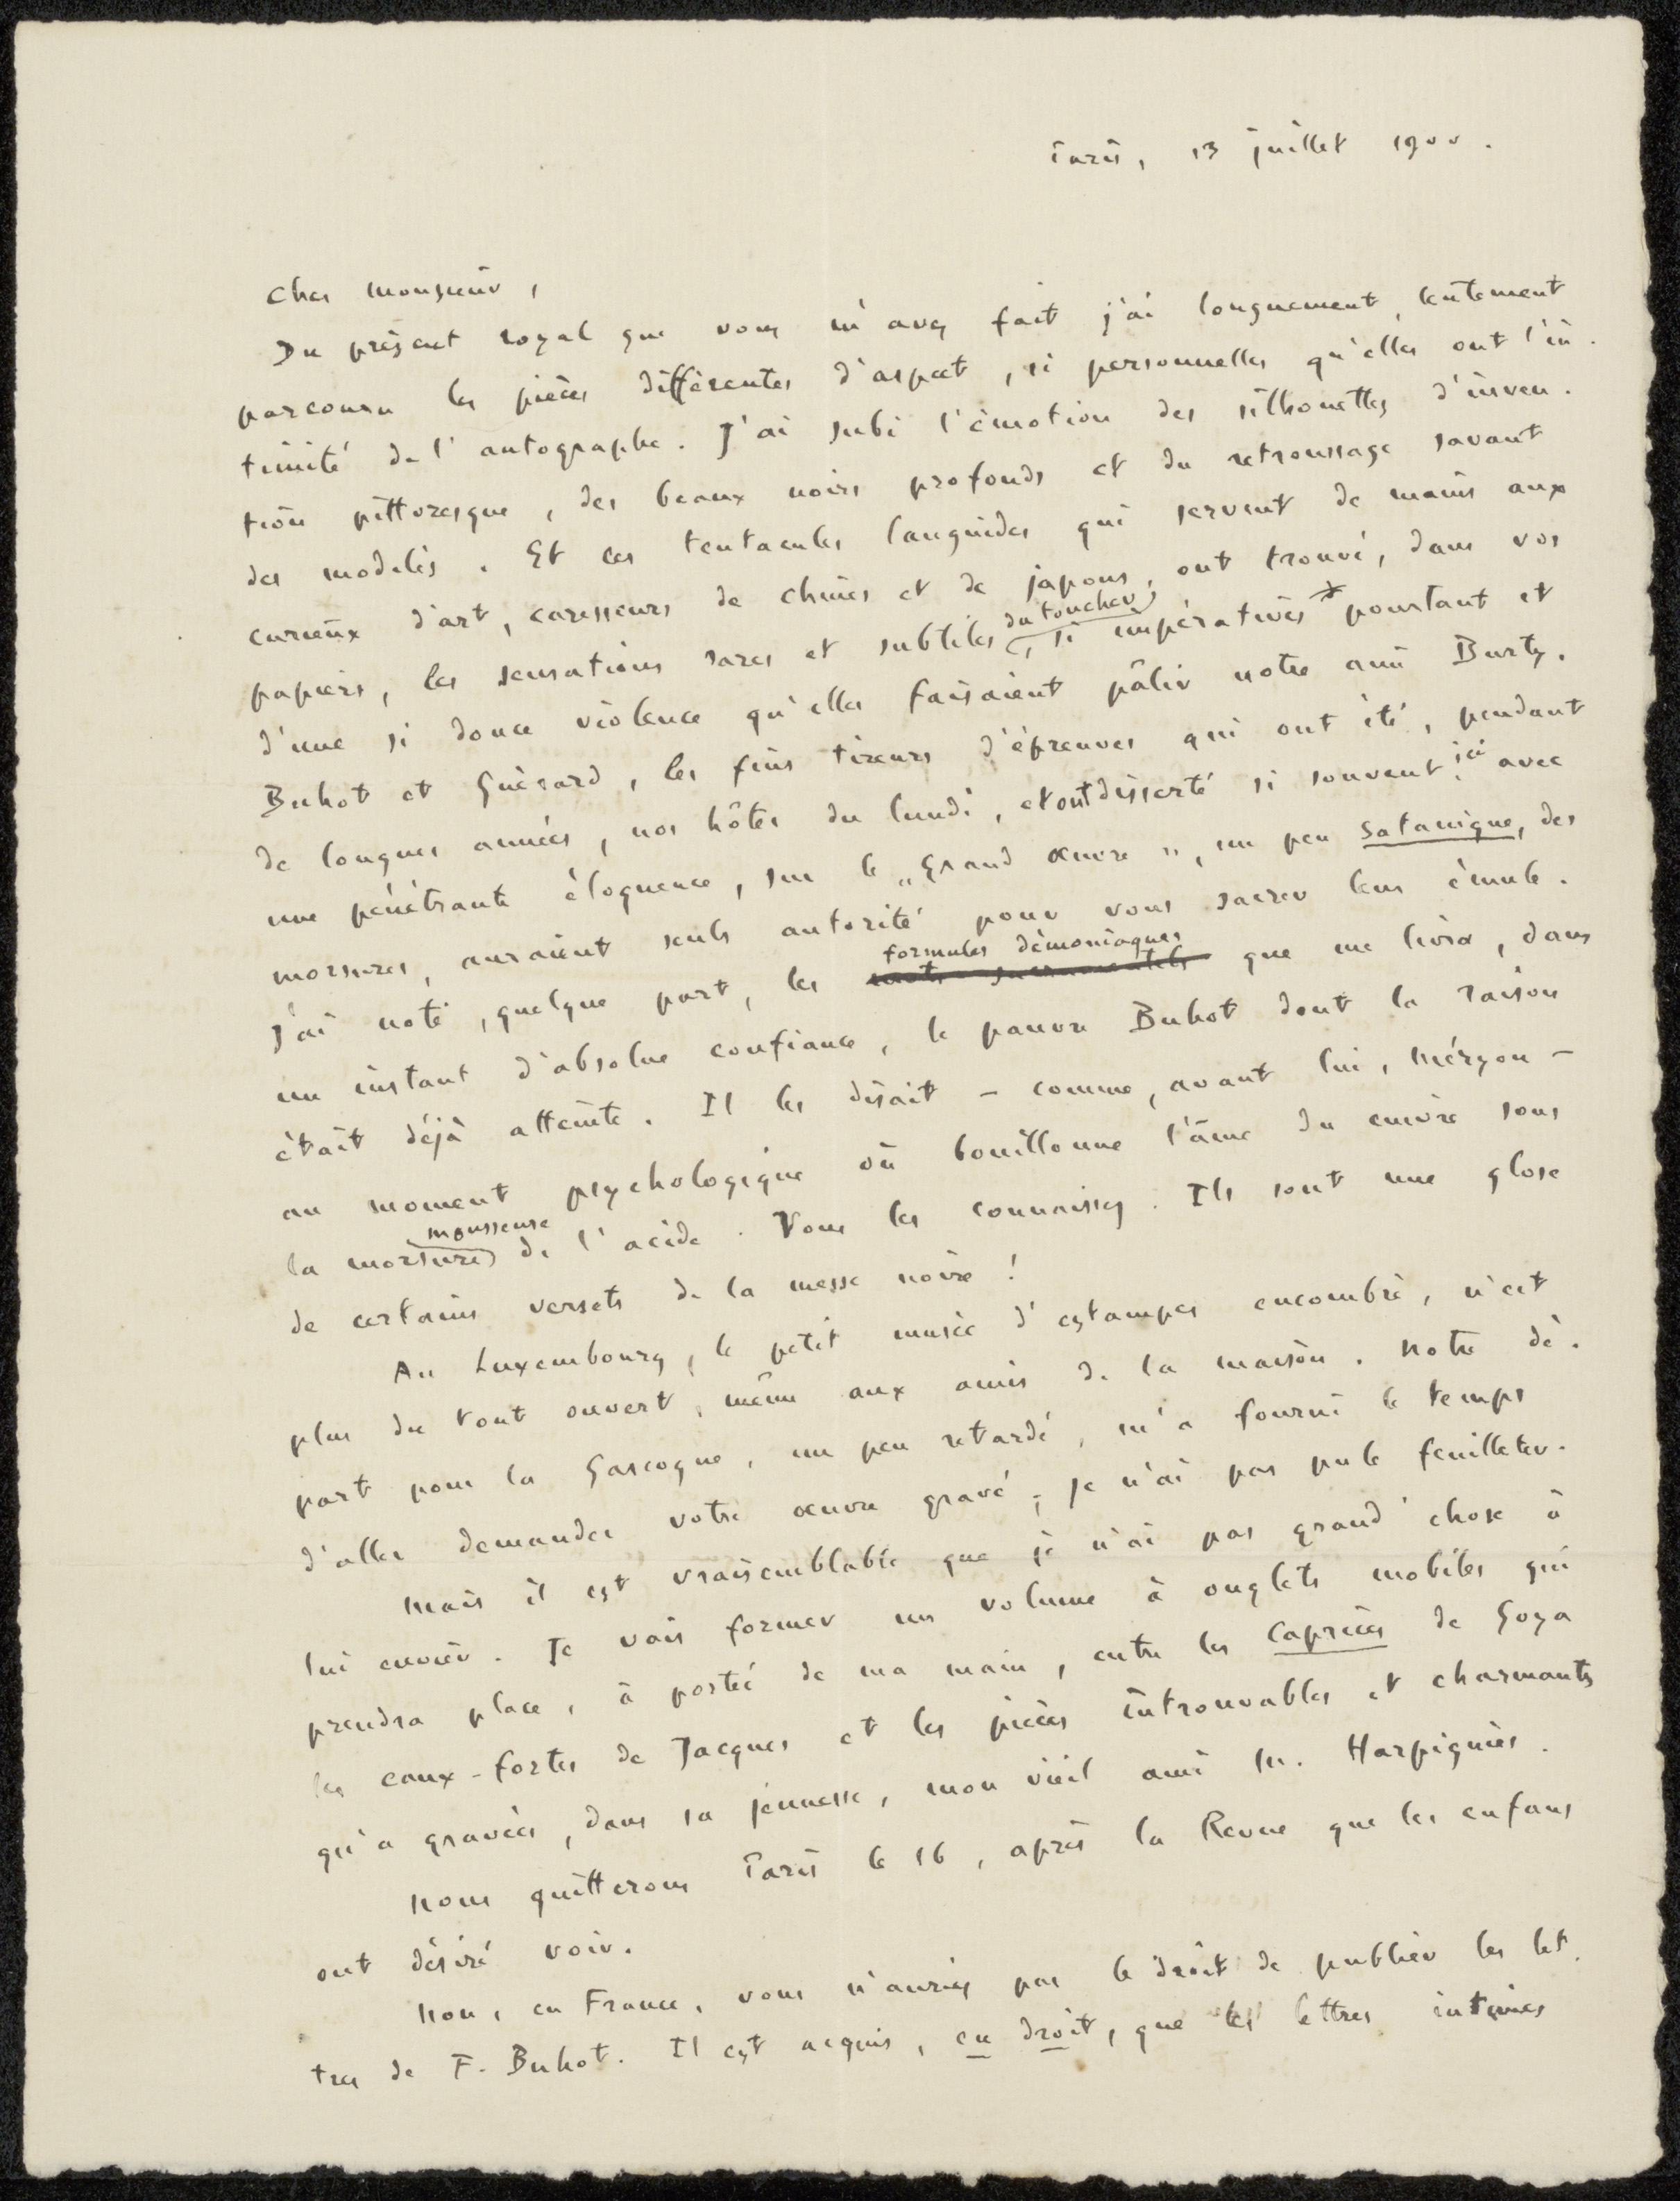 Paris, 13 juillet 1900.
Cher Monsieur,
Du présent royal que vous m'avez fait j'ai longuement, lentement
parcouru les pièces différentes d'aspect, si personnelles qu'elles ont l'in-
timité de l'autographe. J'ai subi l'émotion des silhouettes d'inven-
tion pittoresque, des beaux noirs profonds et du retroussage savant
des modelés. Et ces tentacules languides qui servent de mains aux
curieux d'art, caresseurs de chines et de japons, ont trouvé, dans vos
papiers, les sensations rares et subtiles du toucher, si impératives pourtant et
d'une si douce violence qu'elles faisaient pâlir notre ami Burty.
Buhot et Guérard, les fins tireurs d'épreuves qui ont été, pendant
de longues années, nos hôtes du lundi, et ont disserté si souvent ici avec
une pénétrante éloquence, sur le „grand œuvre", un peu satanique, des
morsures, auraient seuls autorité pour vous sacrer leur émule.
J'ai noté, quelque part, les formules démoniaques que me livra, dans
un instant d'absolue confiance, le pauvre Buhot dont la raison
était déjà atteinte. Il les disait – comme, avant lui, Méryon –
au moment psychologique où bouillonne l'âme du cuivre sous
la morsure mousseuse de l'acide. Vous les connaissez. Ils sont une glose
de certains versets de la messe noire!
Au Luxembourg, le petit musée d'estampes encombré, n'est
plus du tout ouvert, même aux amis de la maison. Notre dé-
part pour la Gascogne, un peu retardé, m'a fourni le temps
d'aller demander votre œuvre gravé; je n'ai pas pu le feuilleter.
Mais il est vraisemblable que je n'ai pas grand'chose à
lui envier. Je vais former un volume à onglets mobiles qui
prendra place, à portée de ma main, entre les Caprices de Goya
les eaux-fortes de Jacques et les pièces introuvables et charmantes
qu'a gravées, dans sa jeunesse, mon vieil ami M. Harpignies.
Nous quitterons Paris le 16, après la Revue que les enfans
ont désiré voir.
Non, en France, vous n'auriez pas le droit de publier les let-
tres de F. Buhot. Il est acquis, en droit, que les lettres intimes